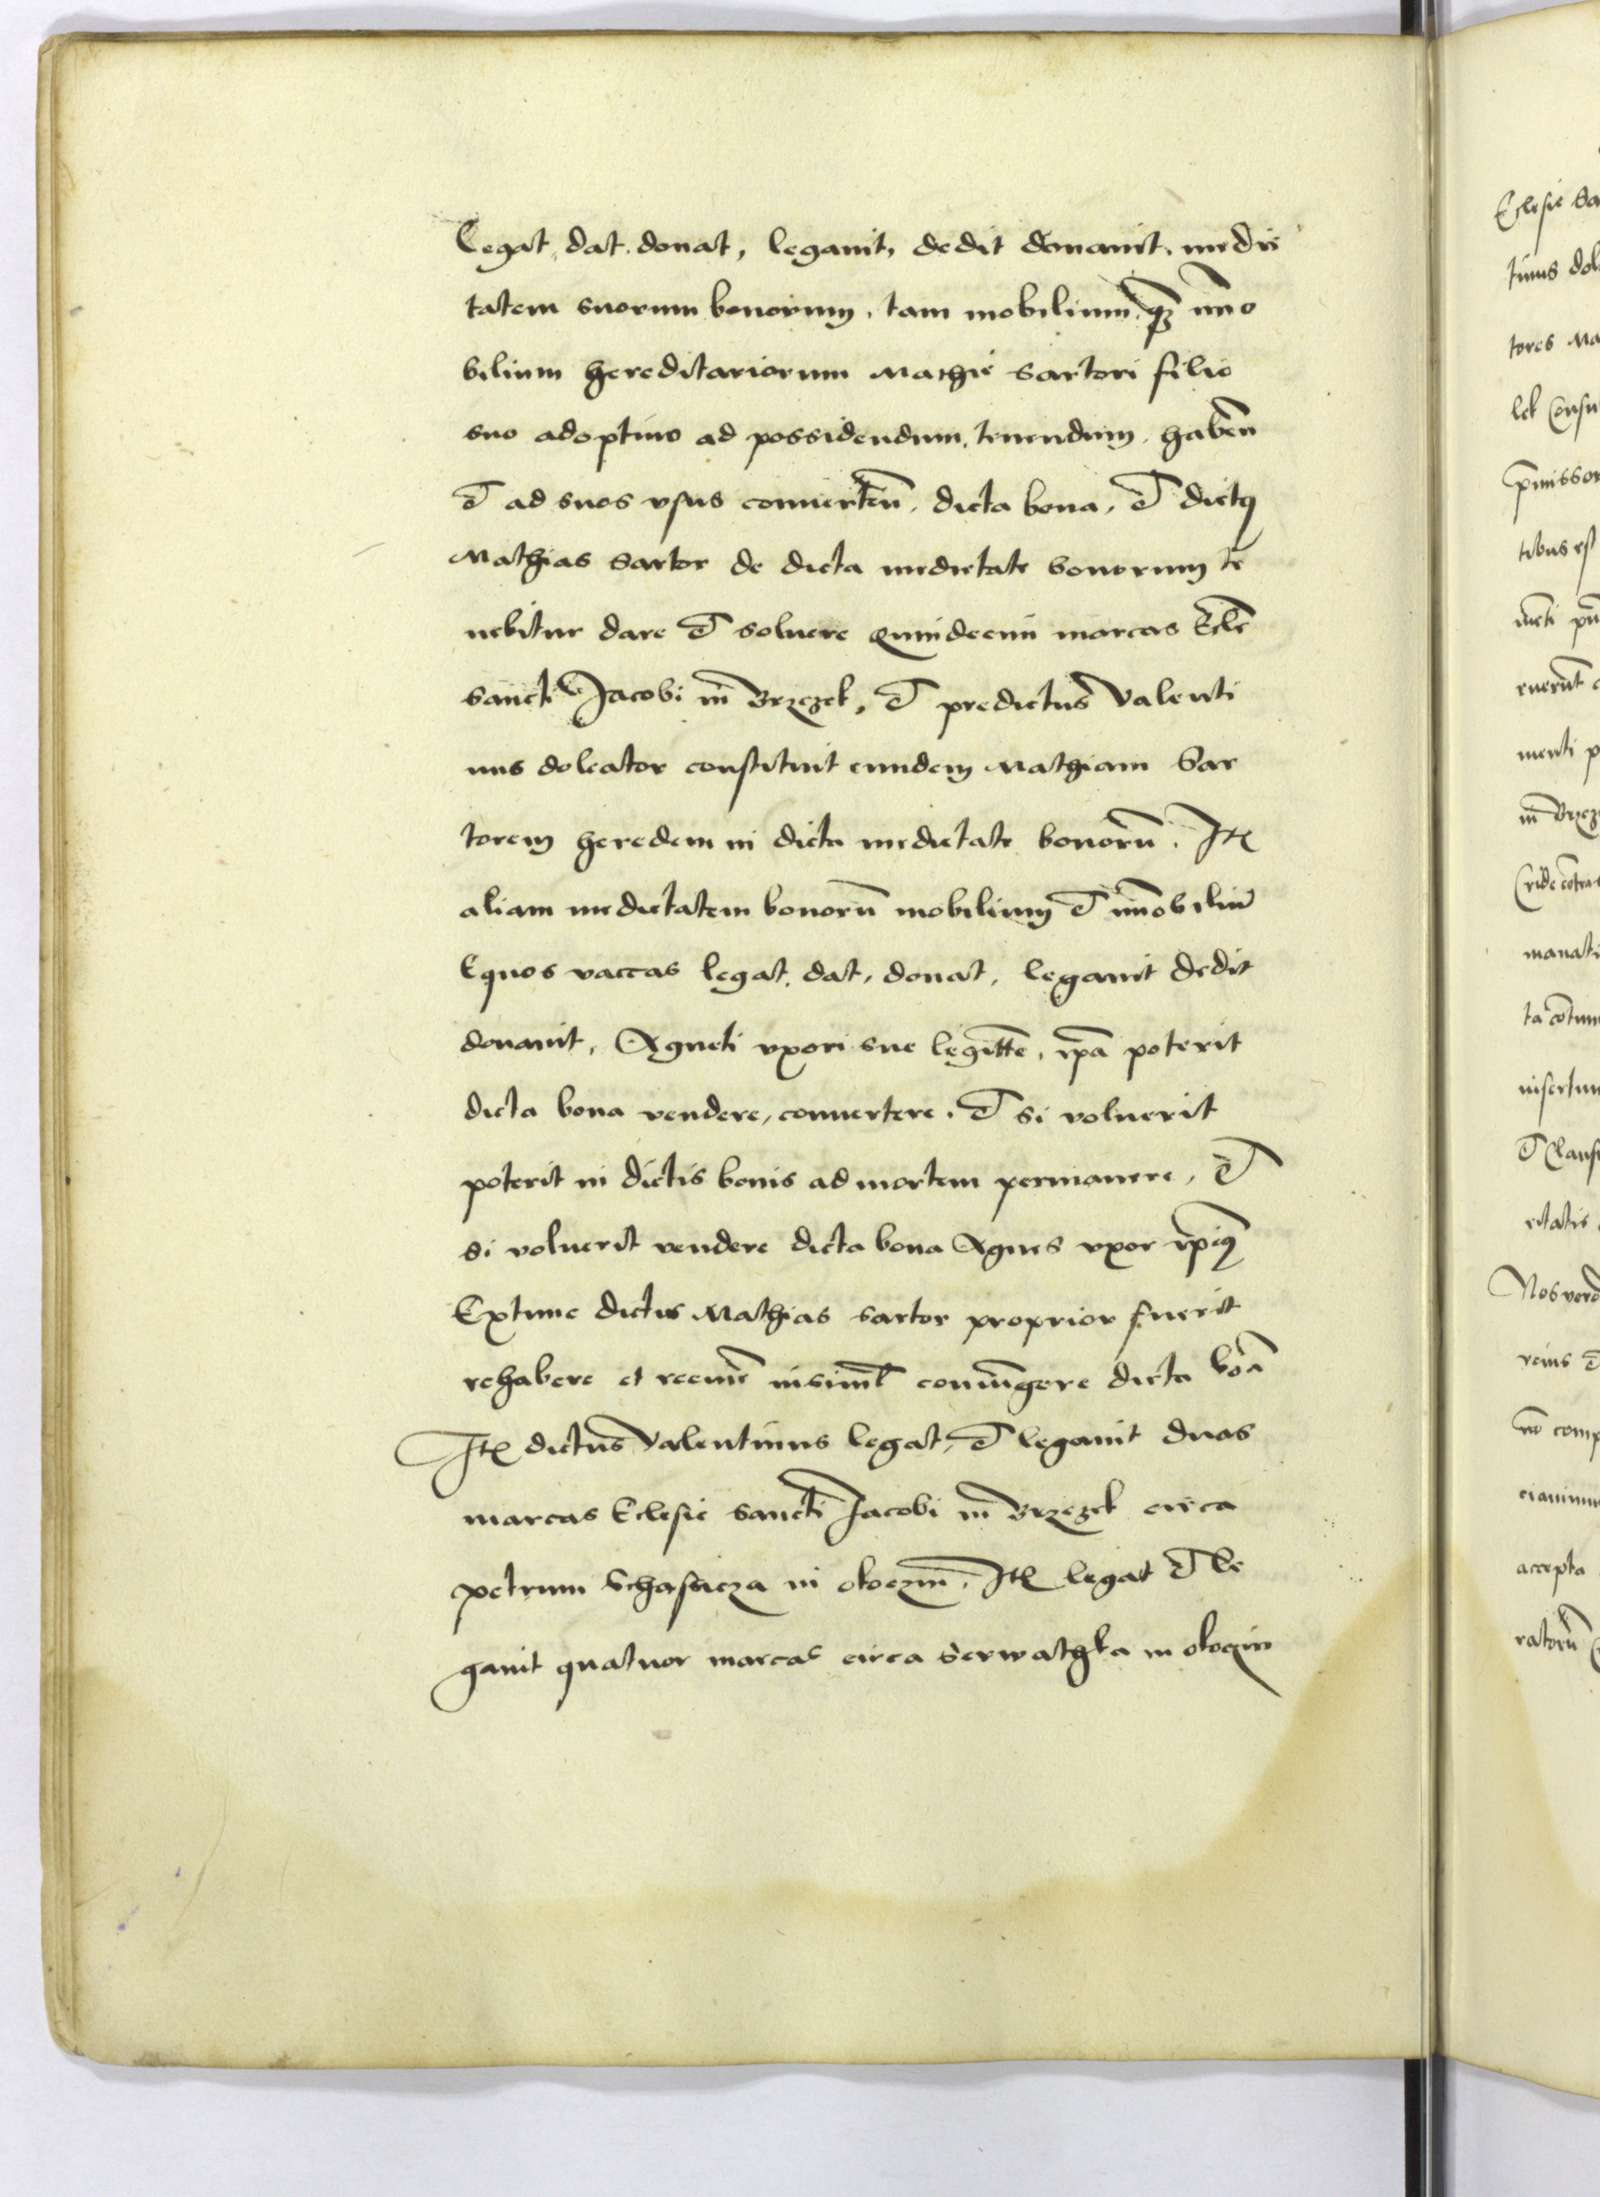 Legat, dat. donat, legauit, dedit donauit. medie
tatem suorum bonorum. tam mobilium. q̄ȝ īmo
bilium hereditariorum Mathie Sartori filio
suo adoptiuo ad possidendum, tenendum. habeñ
et ad suos vsus conuerteñ. dicta bona. et dictꝰ
Mathias Sartor de dicta medietate bonorum te
nebitur dare et soluere Quindecim marcas Eccłe
Sancti Jacobi in Brzezek, et predictus Valenti
nus doleator constituit eundem Mathiam Sar
torem heredem in dicta medietate bonorū. Itē
aliam medietatem bonorū mobilium et īmobiliū
Equos vaccas legat. dat, donat, legauit dedit
donauit, Agneti vxori sue legittē. ip̄a poterit
dicta bona vendere, conuertere. et si voluerit
poterit in dictis bonis ad mortem permanere, et
si voluerit vendere dicta bona Agnes vxor ip̄iꝰ
Extunc dictus Mathias sartor proprior fuerit
rehabere et reemē insiml̄ coniūgere dicta boā
Itē dictus Valentinus legat, et legauit duas
marcas Eclesie Sancti Jacobi in Brzezek circa
petrum Schaffucza in okoczin. Itē legat et le
gauit quatuor marcas circa Serwathka in okoczin
Eclesie Sa
tinus dol
tores Ma
p̄missor
tibus est
menti p
in Brzez
manati
insertum
et Clausu
Nos vero
accepta
ratorū